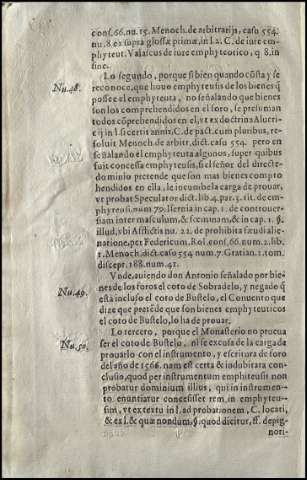 conf. 66. nu. 15. Menoch. de arbitrarijs, casu 554.
nu. 8. ex supra glossa prima, in l. 2. C. de iure em
phyteut. Valascus de iure emphyteotico, q. 8. in
fine.
Nu. 48.
Lo segundo, porque si bien quando cõsta y se
reconoce, que huuo emphyteusis de los bienes q̃
possee el emphyteuta, no señalando que bienes
son los comprehendidos en el foro, se presuman
todos cõprehendidos en el, vt ex doctrina Alberi-
ci in l. si certis annis, C. de pact. cum pluribus, re-
soluit Menoch. de arbitr. dict. casu 554. pero en
señalando el emphyteuta algunos, super quibus
fuit concessa emphyteusis, si el señor del directo
dominio pretende que son mas bienes compre
hendidos en ella, le incumbe la carga de prouar,
vt probat Speculator dict. lib. 4. par. 3. tit. de em-
phyteusi, num. 70. Isernia in cap. 1. de controuer-
siam inter masculum, & fœminam, & in cap. 1. §.
illud, vbi Afflictis nu. 22. de prohibita fœudi alie-
natione, per Federicum, Rol. conf. 66. num. 2. lib.
1. Menoch. dict. casu 554. num. 7. Gratian. 1. tom.
discept. 188. num. 41.
Nu. 49.
Vnde, auiendo don Antonio señalado por bie
nes de los foros el coto de Sobradelo, y negado q̃
està incluso el coto de Bustelo, el Conuento que
dize que pretẽde que son bienes emphyteuticos
el coto de Bustelo, lo ha de prouar.
Nu. 50.
Lo tercero, porque el Monasterio no procura
ser el coto de Bustelo, ni se escusa de la carga de
prouarlo con el instrumento, y escritura de foro
del año de 1566. nam est certa & indubitata con-
clusio, quod per instrumentum emphiteusis non
probatur dominium illius, qui in instrumen-
to enuntiatur concessisset rem in emphyteu-
sim, vt ex textu in l. ad probationem, C. locati,
& ex l. & quæ nondum, §. quod dicitur, ff. de pig-
nori-